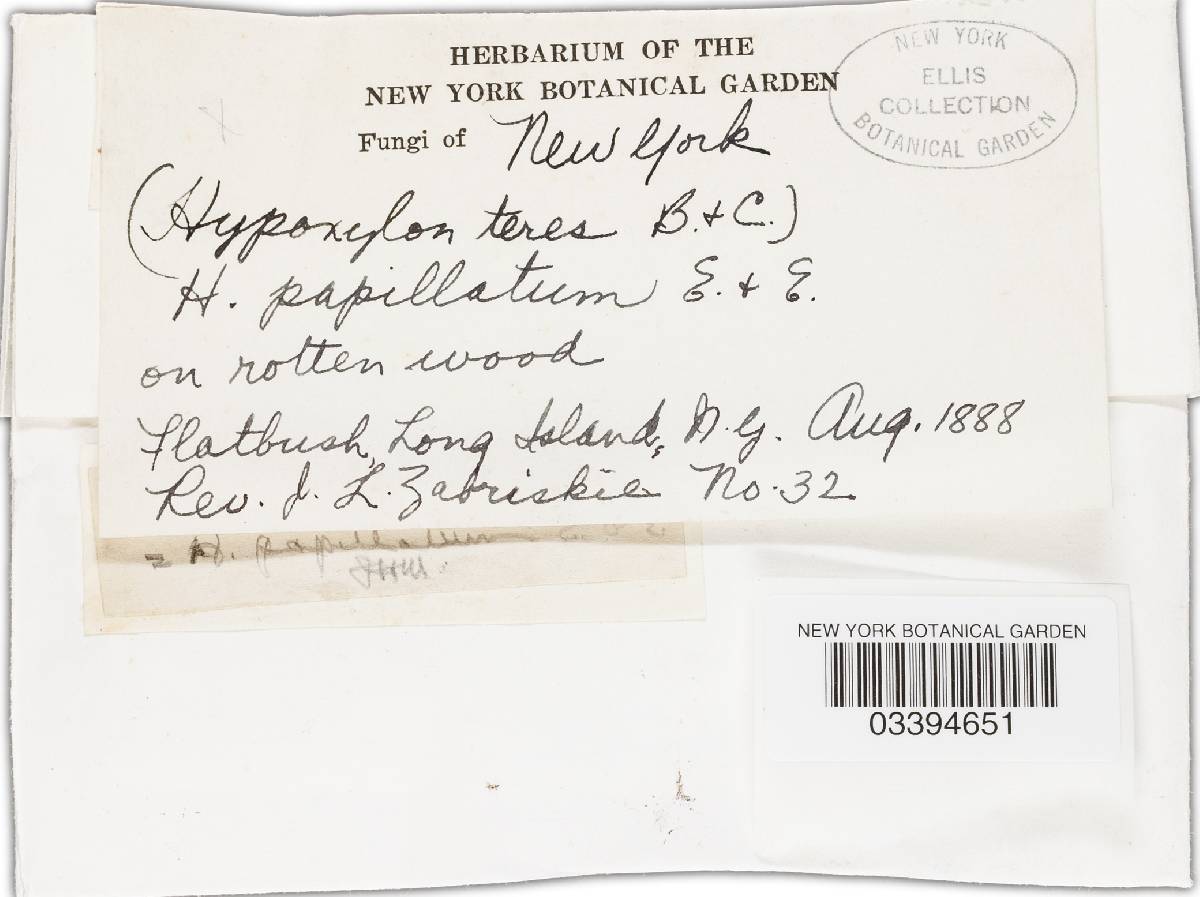 HERBARIUM OF THE
NEW YORK BOTANICAL GARDEN
Fungi of New York
NEW YORK
ELLIS
COLLECTION
BOTANICAL GARDEN
(Hypoxylon teres B. & C.)
H. papillatum E. & E.
on rotten wood
Flatbush, Long Island, N.Y. Aug. 1888
Rev. J. L. Zabriskie No. 32
= H. papillatum E. & E.
NEW YORK BOTANICAL GARDEN
03394651